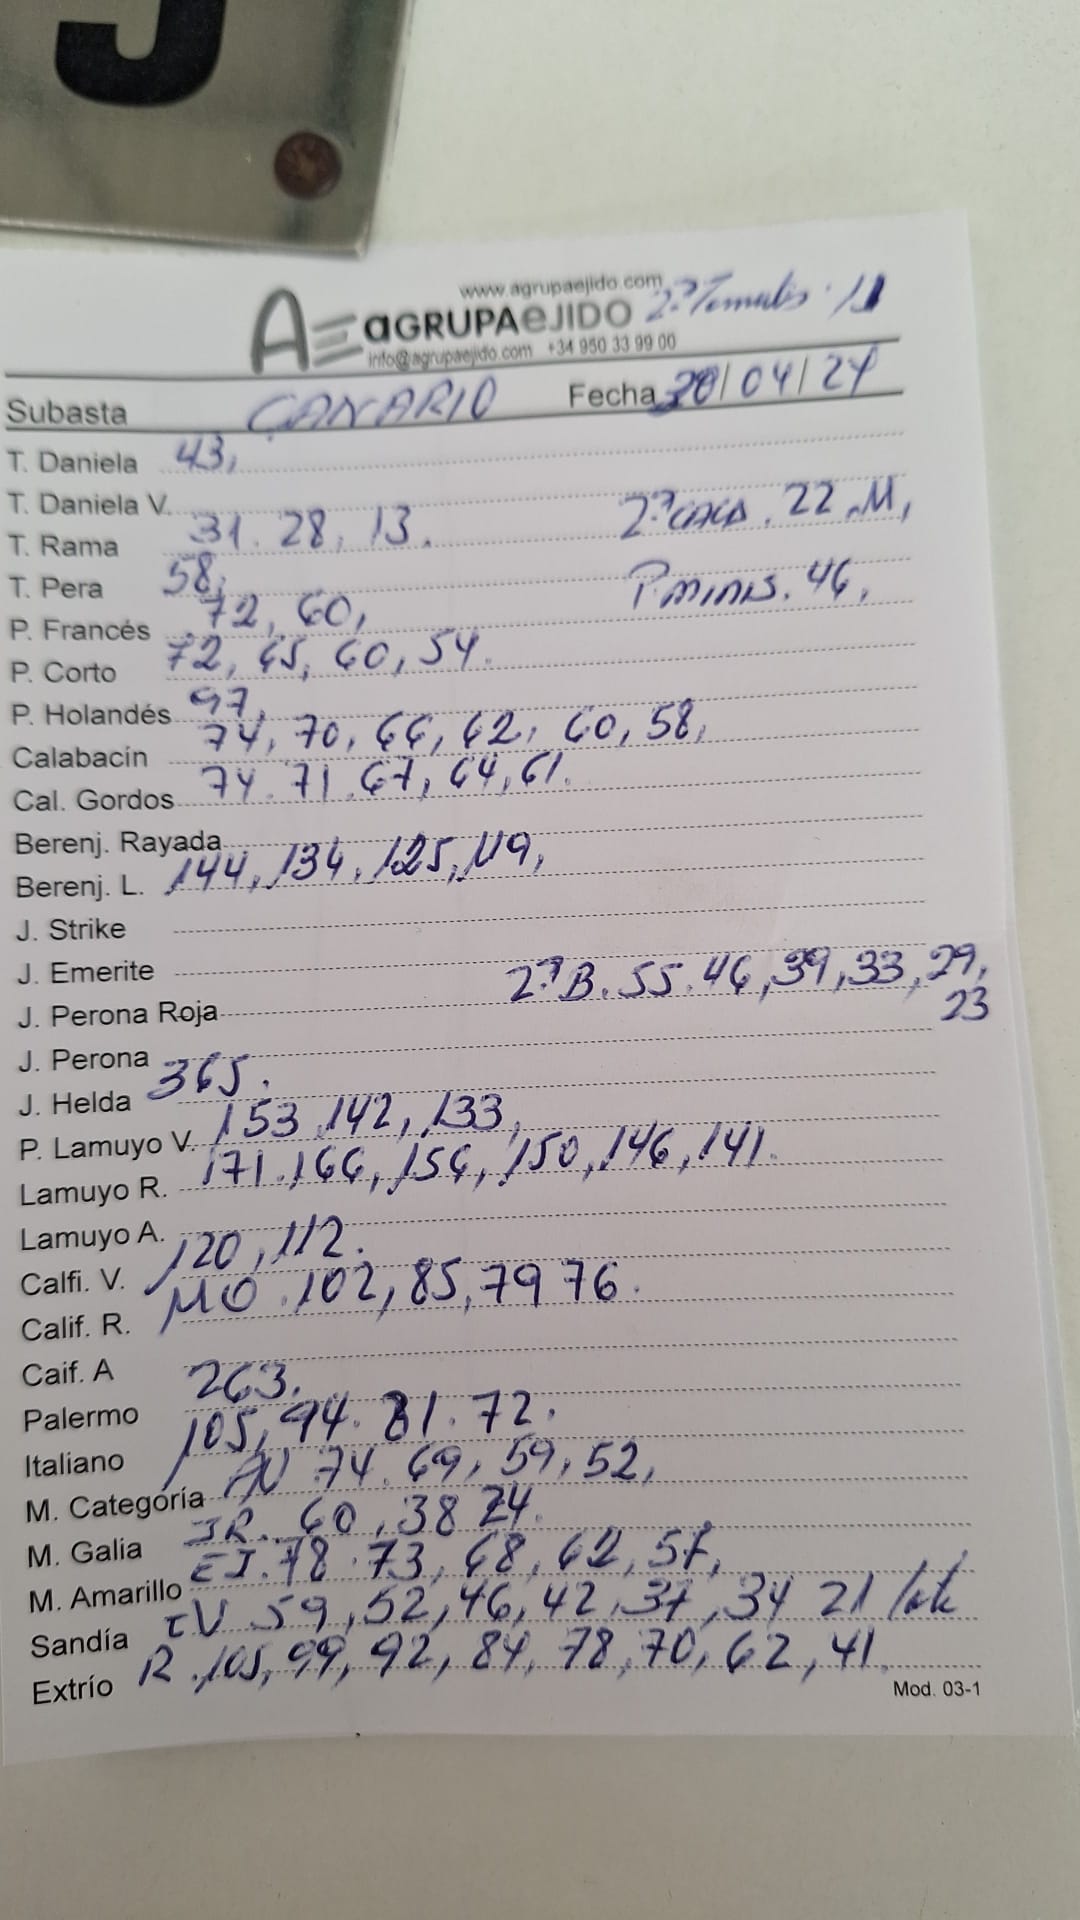 J
www.agrupaejido.com
AE aGRUPAeJIDO 2ª Tomates . 11
info@agrupaejido.com +34 950 33 99 00
Subasta CANARIO Fecha 30/04/24
T. Daniela 43,
T. Daniela V.
T. Rama 31. 28, 13. 2ª CACA. 22 M,
T. Pera 58,
P. Francés 72, 60, P minis. 46,
P. Corto 72, 65, 60, 54.
P. Holandés 97,
Calabacín 74, 70, 66, 62, 60, 58,
Cal. Gordos 74. 71. 67, 64, 61.
Berenj. Rayada
Berenj. L. 144, 134, 125, 119,
J. Strike
J. Emerite
J. Perona Roja 2ª B. 55. 46, 39, 33, 29,
23
J. Perona
J. Helda 365.
P. Lamuyo V. 153, 142, 133,
Lamuyo R. 171. 166, 156, 150, 146, 141.
Lamuyo A.
Calfi. V. 120, 112.
Calif. R. 110. 102, 85, 79 76.
Caif. A
Palermo 263.
Italiano 105, 94. 81. 72.
M. Categoría AN 74. 69, 59, 52,
M. Galia JR. 60, 38 24.
M. Amarillo EJ. 78. 73, 68, 62, 57,
Sandía CV 59, 52, 46, 42, 37, 34 21
Extrío R. 105, 99, 92, 84, 78, 70, 62, 41.
Mod. 03-1